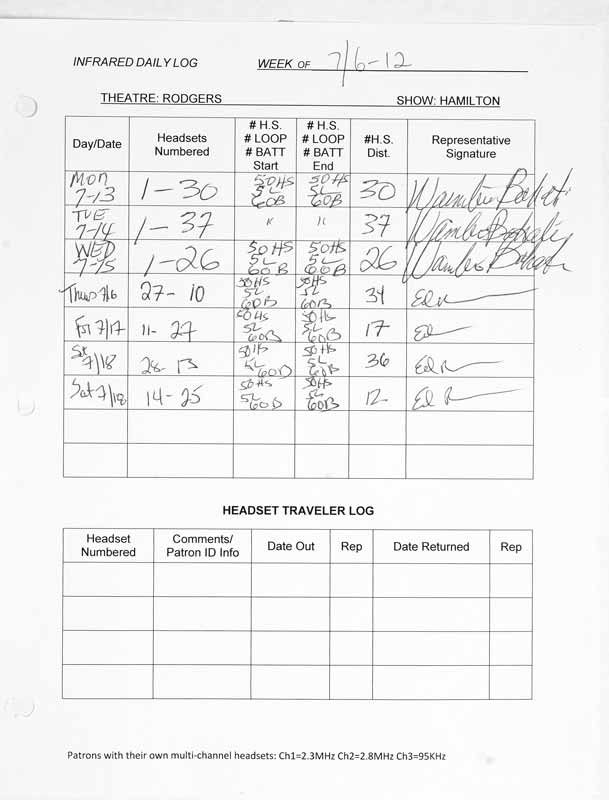 INFRARED DAILY LOG WEEK OF 7/6-12
THEATRE: RODGERS SHOW: HAMILTON
Day/Date Headsets Numbered # H.S. # LOOP # BATT Start # H.S. # LOOP # BATT End #H.S. Dist. Representative Signature
MON 7-13 1-30 50HS 5L 60B 50HS 5L 60B 30
TUE 7-14 1-37 " " 37
WED 7-15 1-26 50HS 5L 60B 50HS 5L 60B 26
Thurs 7/6 27-10 50HS 5L 60B 50HS 5L 60B 34 Ed
Fri 7/17 11-27 50HS 5L 60B 50HS 5L 60B 17 Ed
Sat 7/18 28-13 50HS 5L 60B 50HS 5L 60B 36 Ed R
Sat 7/18 14-25 50HS 5L 60B 50HS 5L 60B 12 Ed R
HEADSET TRAVELER LOG
Headset Numbered Comments/ Patron ID Info Date Out Rep Date Returned Rep
Patrons with their own multi-channel headsets: Ch1=2.3MHz Ch2=2.8MHz Ch3=95KHz